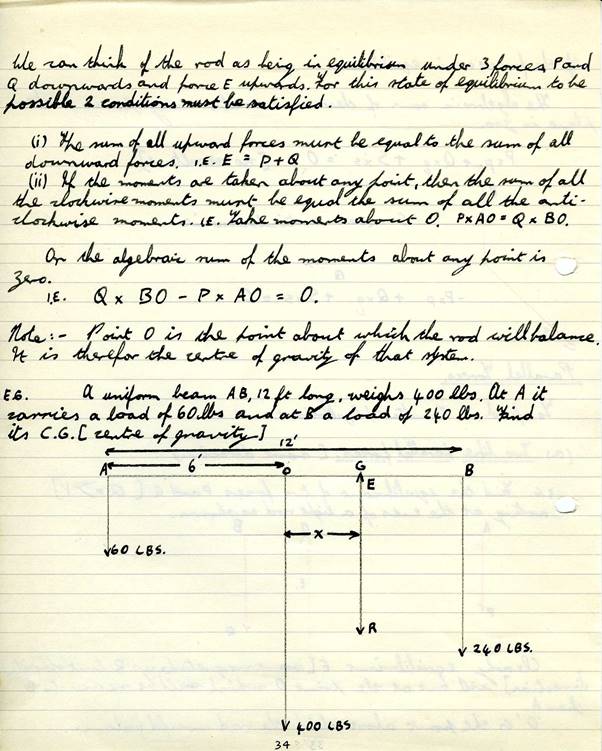 We can think of the rod as being in equilibrium under 3 forces, P and
Q downwards and force E upwards. For this state of equilibrium to be
possible 2 conditions must be satisfied.
(i) The sum of all upward forces must be equal to the sum of all
downward forces. I.E. E = P+Q
(ii) If the moments are taken about any point, then the sum of all
the clockwise moments must be equal the sum of all the anti-
clockwise moments. I.E. Take moments about O. P×AO = Q×BO.
Or the algebraic sum of the moments about any point is
zero.
I.E. Q × BO - P × AO = O.
Note:- Point O is the point about which the rod will balance.
It is therefor the centre of gravity of that system.
E.G. A uniform beam AB, 12 ft long, weighs 400 lbs. At A it
carries a load of 60 lbs and at B a load of 240 lbs. Find
its C.G. [centre of gravity]
12'
A 6' O G B
E
x
60 LBS.
R
240 LBS.
400 LBS
34